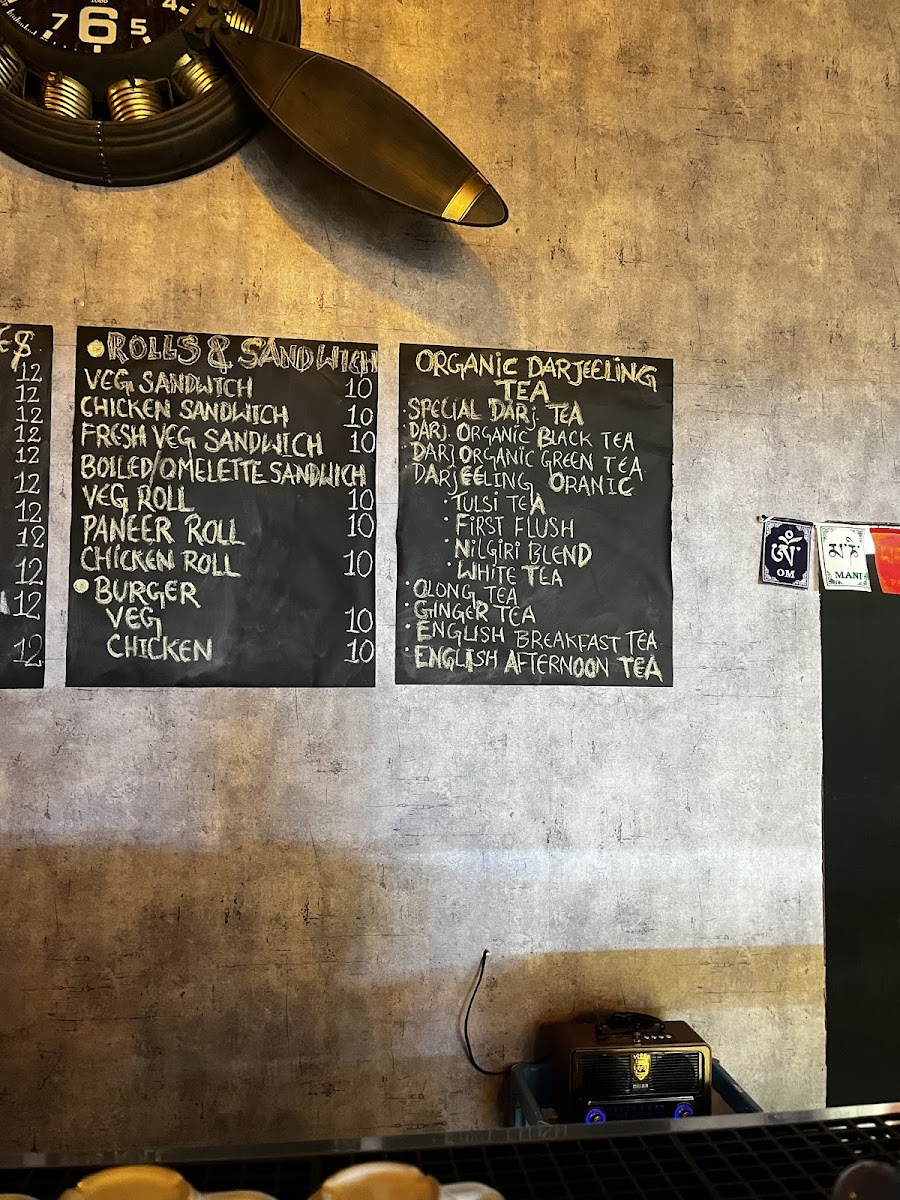 7 6 5 4
ES
12
12
12
12
12
12
12
12
12
12
12
ROLLS & SANDWICH
VEG SANDWICH 10
CHICKEN SANDWICH 10
FRESH VEG SANDWICH 10
BOILED/OMELETTE SANDWICH
VEG ROLL 10
PANEER ROLL 10
CHICKEN ROLL 10
BURGER
VEG 10
CHICKEN 10
ORGANIC DARJEELING
TEA
SPECIAL DARJ. TEA
DARJ. ORGANIC BLACK TEA
DARJ ORGANIC GREEN TEA
DARJEELING ORANIC
TULSI TEA
FIRST FLUSH
NILGIRI BLEND
WHITE TEA
OLONG TEA
GINGER TEA
ENGLISH BREAKFAST TEA
ENGLISH AFTERNOON TEA
ༀ
OM
མ་ཎི
MANI